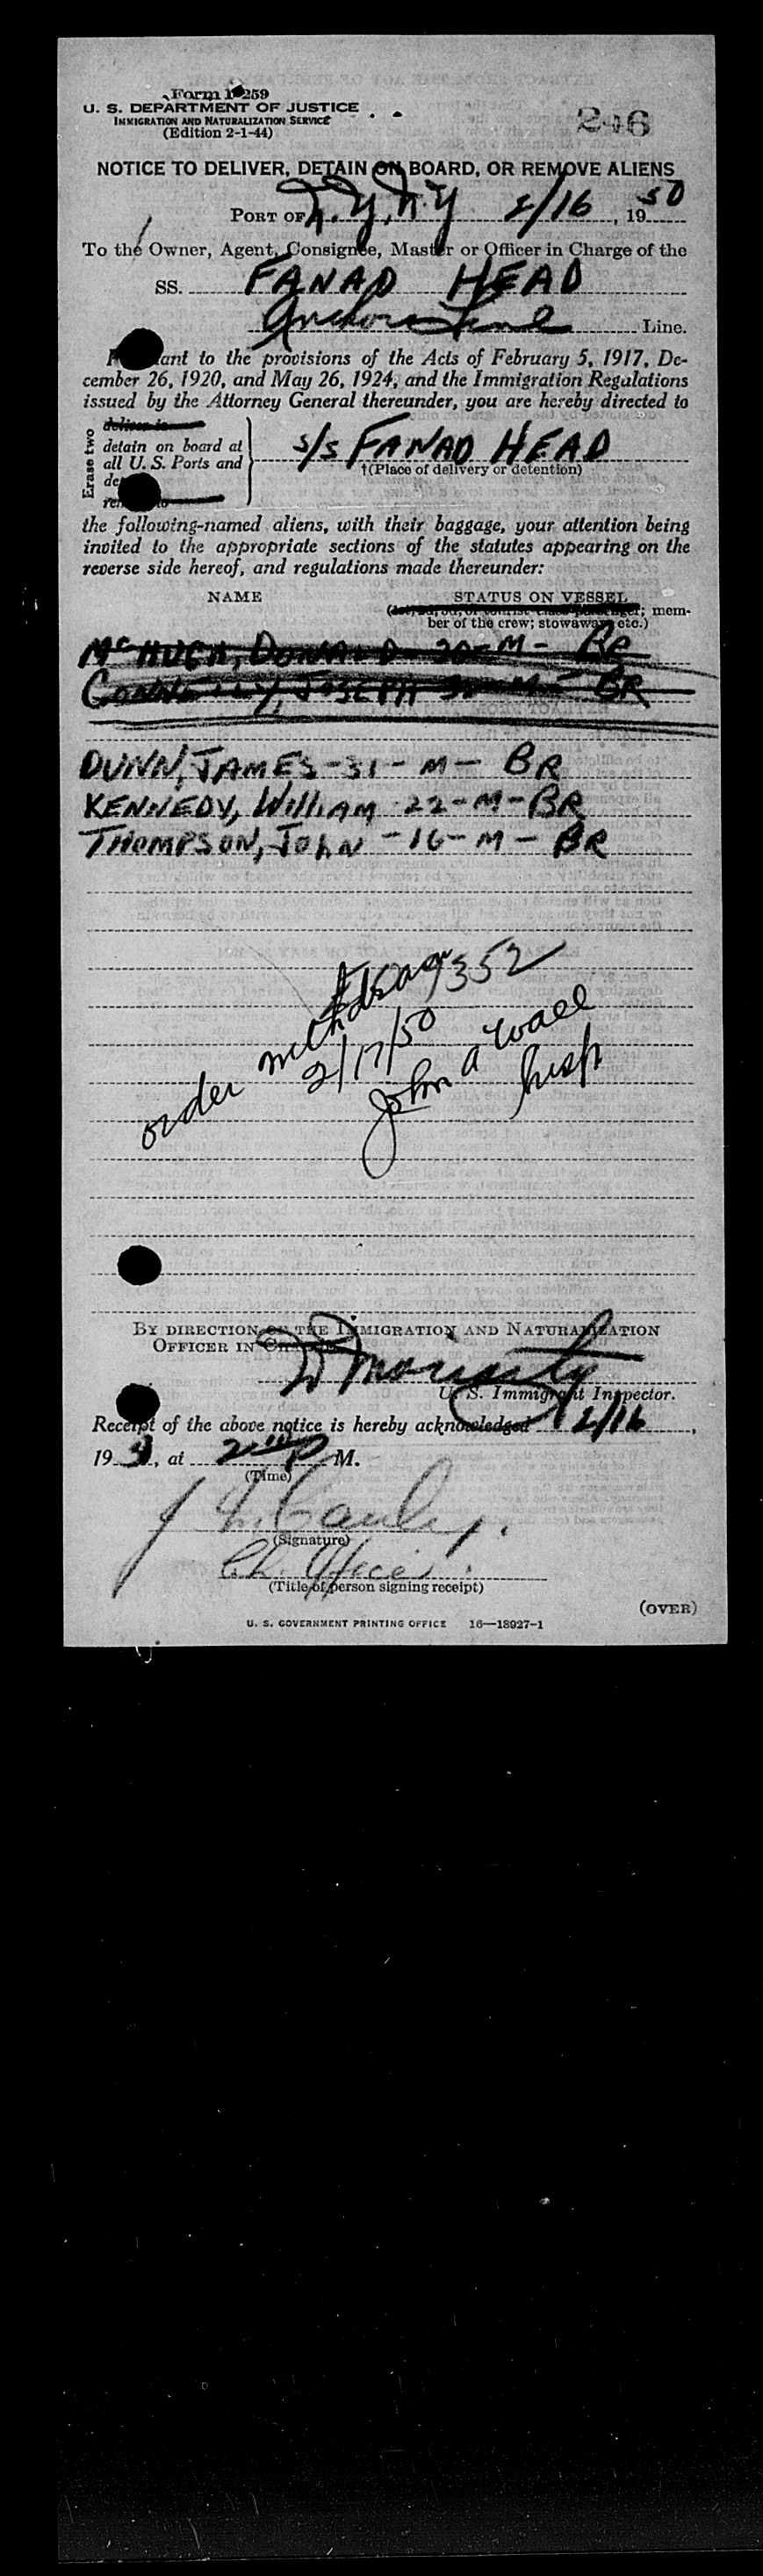 Form I-259
U. S. DEPARTMENT OF JUSTICE
IMMIGRATION AND NATURALIZATION SERVICE
(Edition 2-1-44)
246
NOTICE TO DELIVER, DETAIN ON BOARD, OR REMOVE ALIENS
PORT OF N.Y, N.Y 2/16, 1950
To the Owner, Agent, Consignee, Master or Officer in Charge of the
SS. FANAD HEAD
Anchor Line Line.
ant to the provisions of the Acts of February 5, 1917, De-
cember 26, 1920, and May 26, 1924, and the Immigration Regulations
issued by the Attorney General thereunder, you are hereby directed to
Erase two
deliver to
detain on board at
all U. S. Ports and
s/s FANAD HEAD
†(Place of delivery or detention)
the following-named aliens, with their baggage, your attention being
invited to the appropriate sections of the statutes appearing on the
reverse side hereof, and regulations made thereunder:
NAME STATUS ON VESSEL
; mem-
ber of the crew; stowaway, etc.)
McHUGH, DONALD - M - BR
JOSEPH - M - BR
DUNN, JAMES - 31 - M - BR
KENNEDY, William 22 - M - BR
THOMPSON, JOhN - 16 - M - BR
order withdrawn 352
2/17/50
John A Wall
Insp
BY DIRECTION OF THE IMMIGRATION AND NATURALIZATION
OFFICER IN
U. S. Immigrant Inspector.
Receipt of the above notice is hereby acknowledged 2/16,
19, at P M.
(Time)
(Signature)
Ch. Officer.
(Title of person signing receipt)
(OVER)
U. S. GOVERNMENT PRINTING OFFICE 16—18927-1